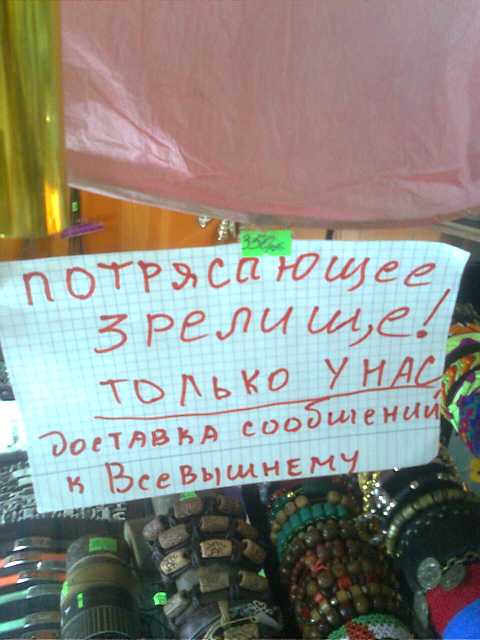 ПОТРЯСАЮЩЕЕ
ЗРЕЛИЩЕ!
ТОЛЬКО У НАС
ДОСТАВКА СООБЩЕНИЙ
К ВСЕВЫШНЕМУ